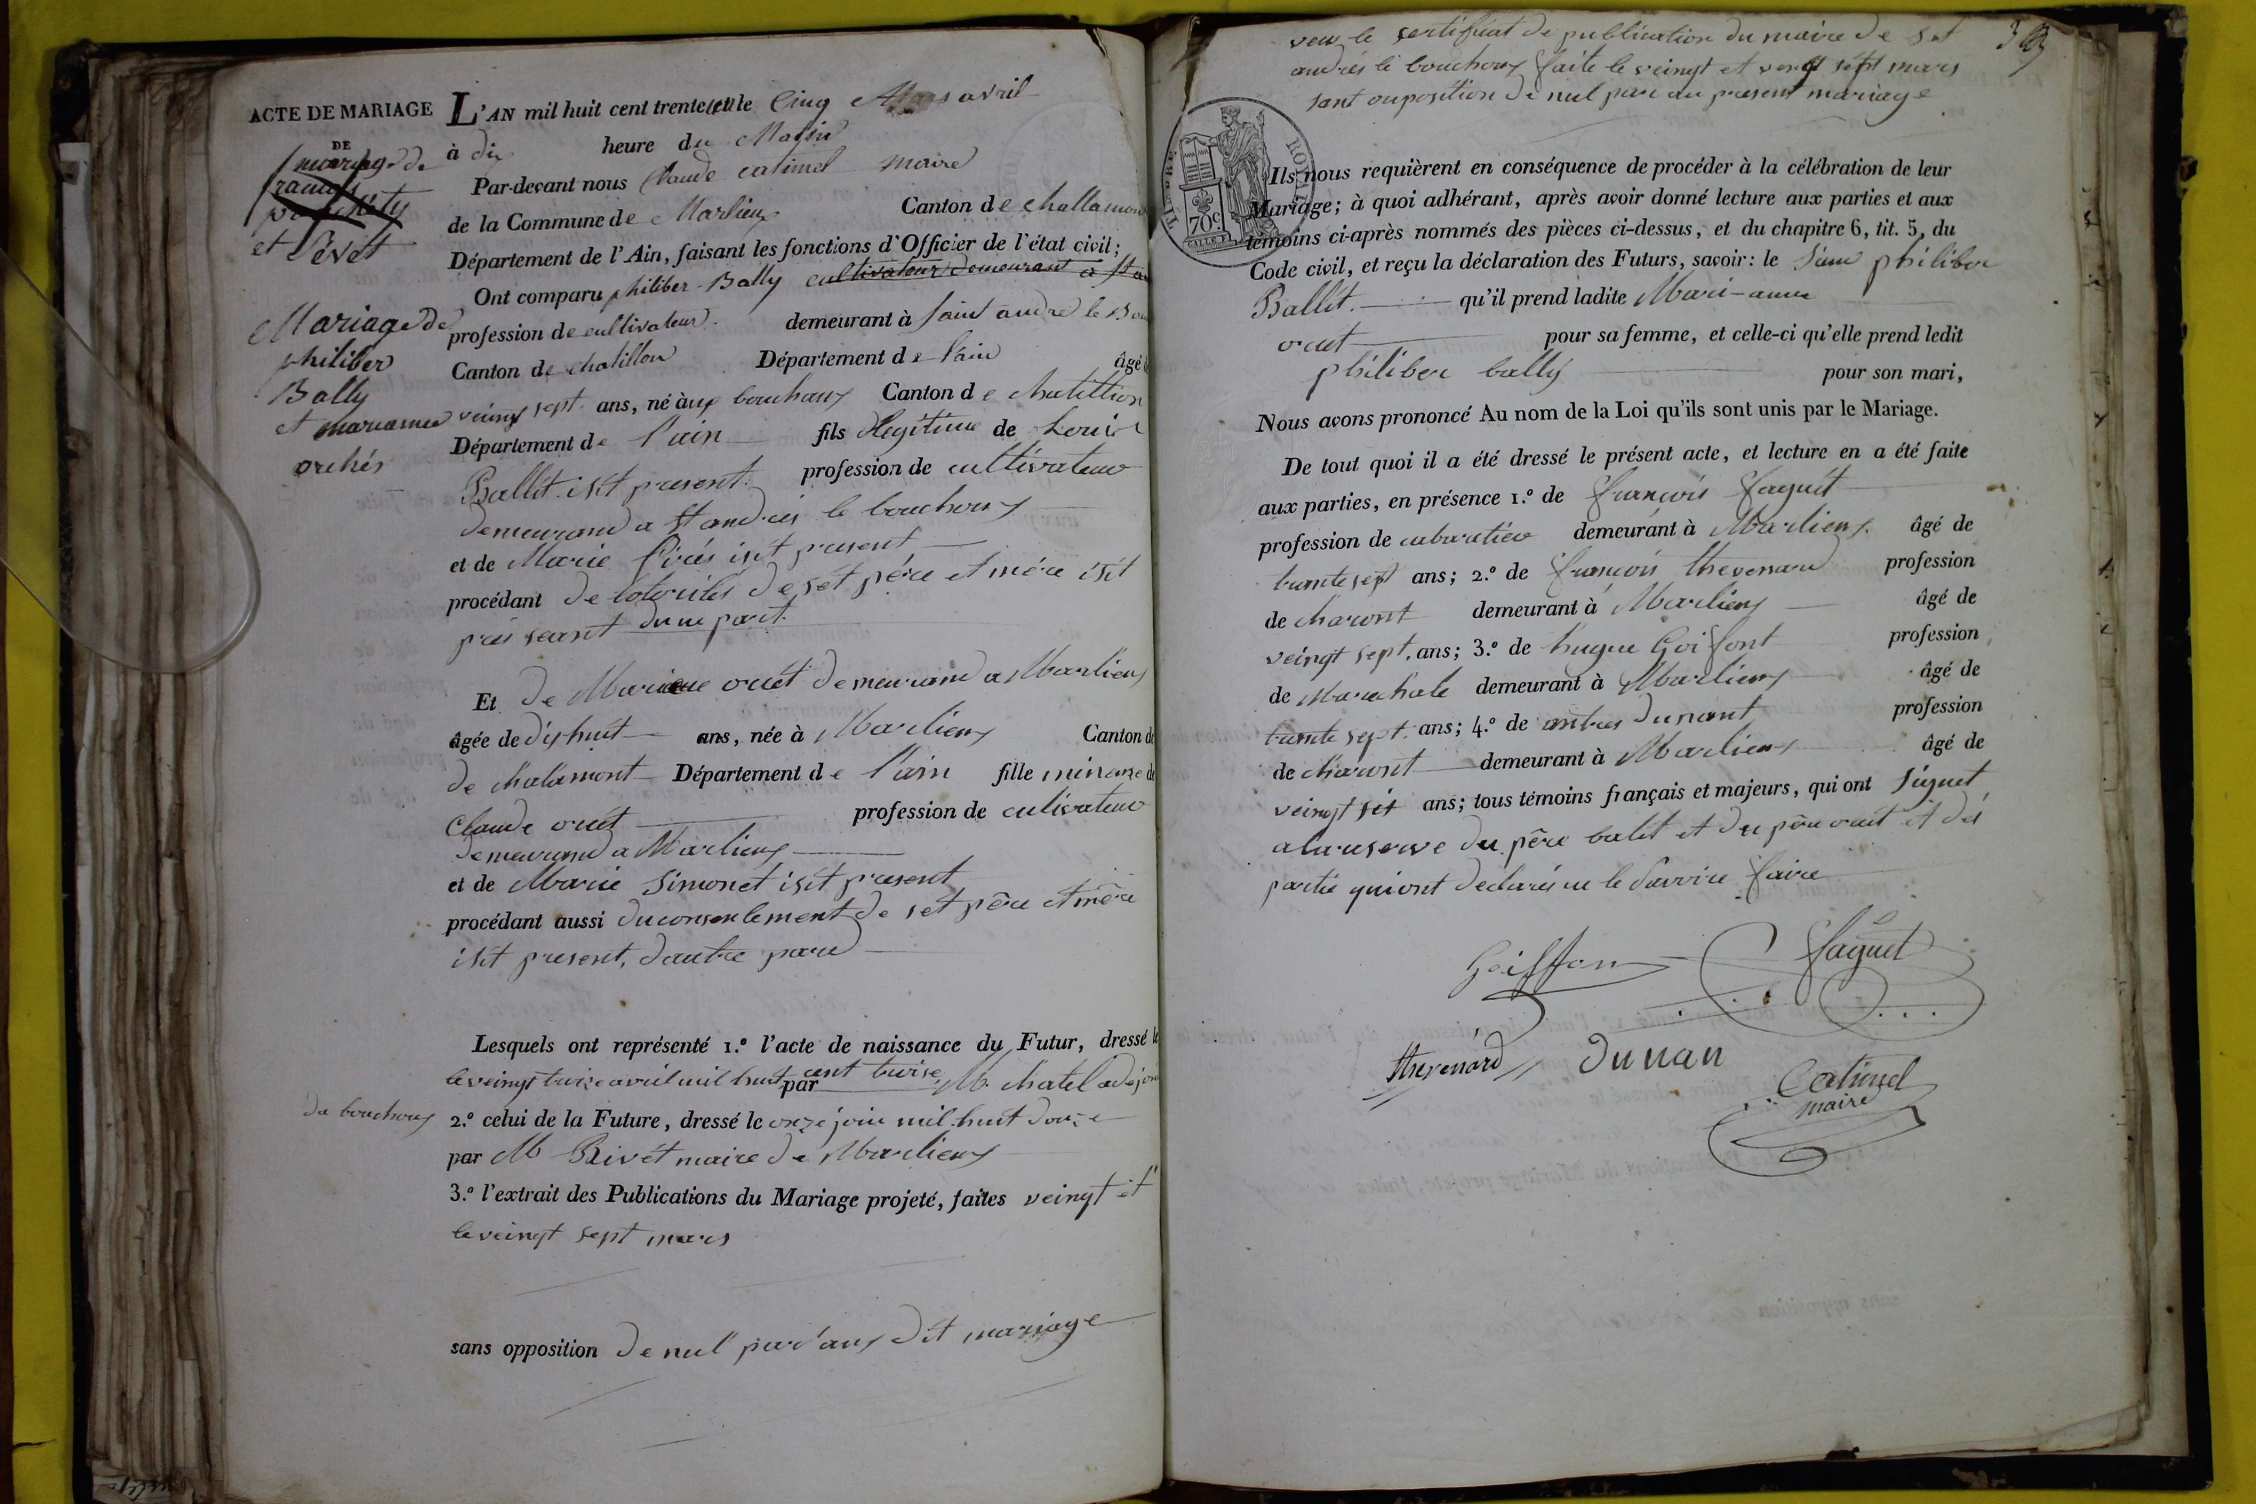 ACTE DE MARIAGE
DE
mariage de
et Pevet
Mariage de
philiber
Bally
et marianne
orchés
L'AN mil huit cent trente le Cinq avril
à dix heure du Matin
Par-devant nous Claude catimel maire
de la Commune de Marlieux Canton de challamont
Département de l'Ain, faisant les fonctions d'Officier de l'état civil;
Ont comparu philiber Bally cultivateur demeurant a st an
profession de cultivateur. demeurant à saint andre le Bou
Canton de chatillon Département de l'ain âgé d
veingt sept ans, né à aux bouchoux Canton de chatillion
Département de l'ain fils légitime de Louis
Ballit isit present. profession de cultivateur
demeurand a st andrés le bouchoux
et de Marie isit present
procédant de set pére et mére isit
pré seant du ne part
Et de Marianne orcét demeurand a Marlieux
âgée de dix huit ans, née à Marlieux Canton de
de chalamont Département de l'ain fille mineure de
Claude orcét profession de cultivateur
demeurand a Marlieux
et de Marie Simonet isit present
procédant aussi du consentement de set père et mère
isit present, d'autre pard
Lesquels ont représenté 1.º l'acte de naissance du Futur, dressé le
le veingt treize avril mil huit cent treize par M. chatel adejoin
da bouchoux
2.º celui de la Future, dressé le onze join mil huit douze
par M Rivét maire de Marlieux
3.º l'extrait des Publications du Mariage projeté, faites veingt et
le veingt sept mars
sans opposition de nul par aux dit mariage
343
veu le sertificat de publication du maire de st
andrés le bouchoux faite le veingt et vengt sept mars
sant ouposition de nul par au present mariage
TIMBRE ROYAL
70 c.
Ils nous requièrent en conséquence de procéder à la célébration de leur
Mariage; à quoi adhérant, après avoir donné lecture aux parties et aux
témoins ci-après nommés des pièces ci-dessus, et du chapitre 6, tit. 5, du
Code civil, et reçu la déclaration des Futurs, savoir: le philiber
Ballit. qu'il prend ladite Mari-anne
orcét pour sa femme, et celle-ci qu'elle prend ledit
philiber bally pour son mari,
Nous avons prononcé Au nom de la Loi qu'ils sont unis par le Mariage.
De tout quoi il a été dressé le présent acte, et lecture en a été faite
aux parties, en présence 1.º de françois faguét
profession de cabaretiér demeurant à Marlieux. âgé de
trante sept ans; 2.º de françois thevenard profession
de charont demeurant à Marlieux âgé de
veingt sept. ans; 3.º de hugue Goiffont profession
de Marechale demeurant à Marlieux âgé de
trante sept. ans; 4.º de dunant profession
de charont demeurant à Marlieux âgé de
veingt sit ans; tous témoins français et majeurs, qui ont signet
a la reserve du père balit et du père orcét et dés
partie qui ont declarés ne le savoire faire
Goiffon
faguet
thevenard
Dunan
Catimel
maire